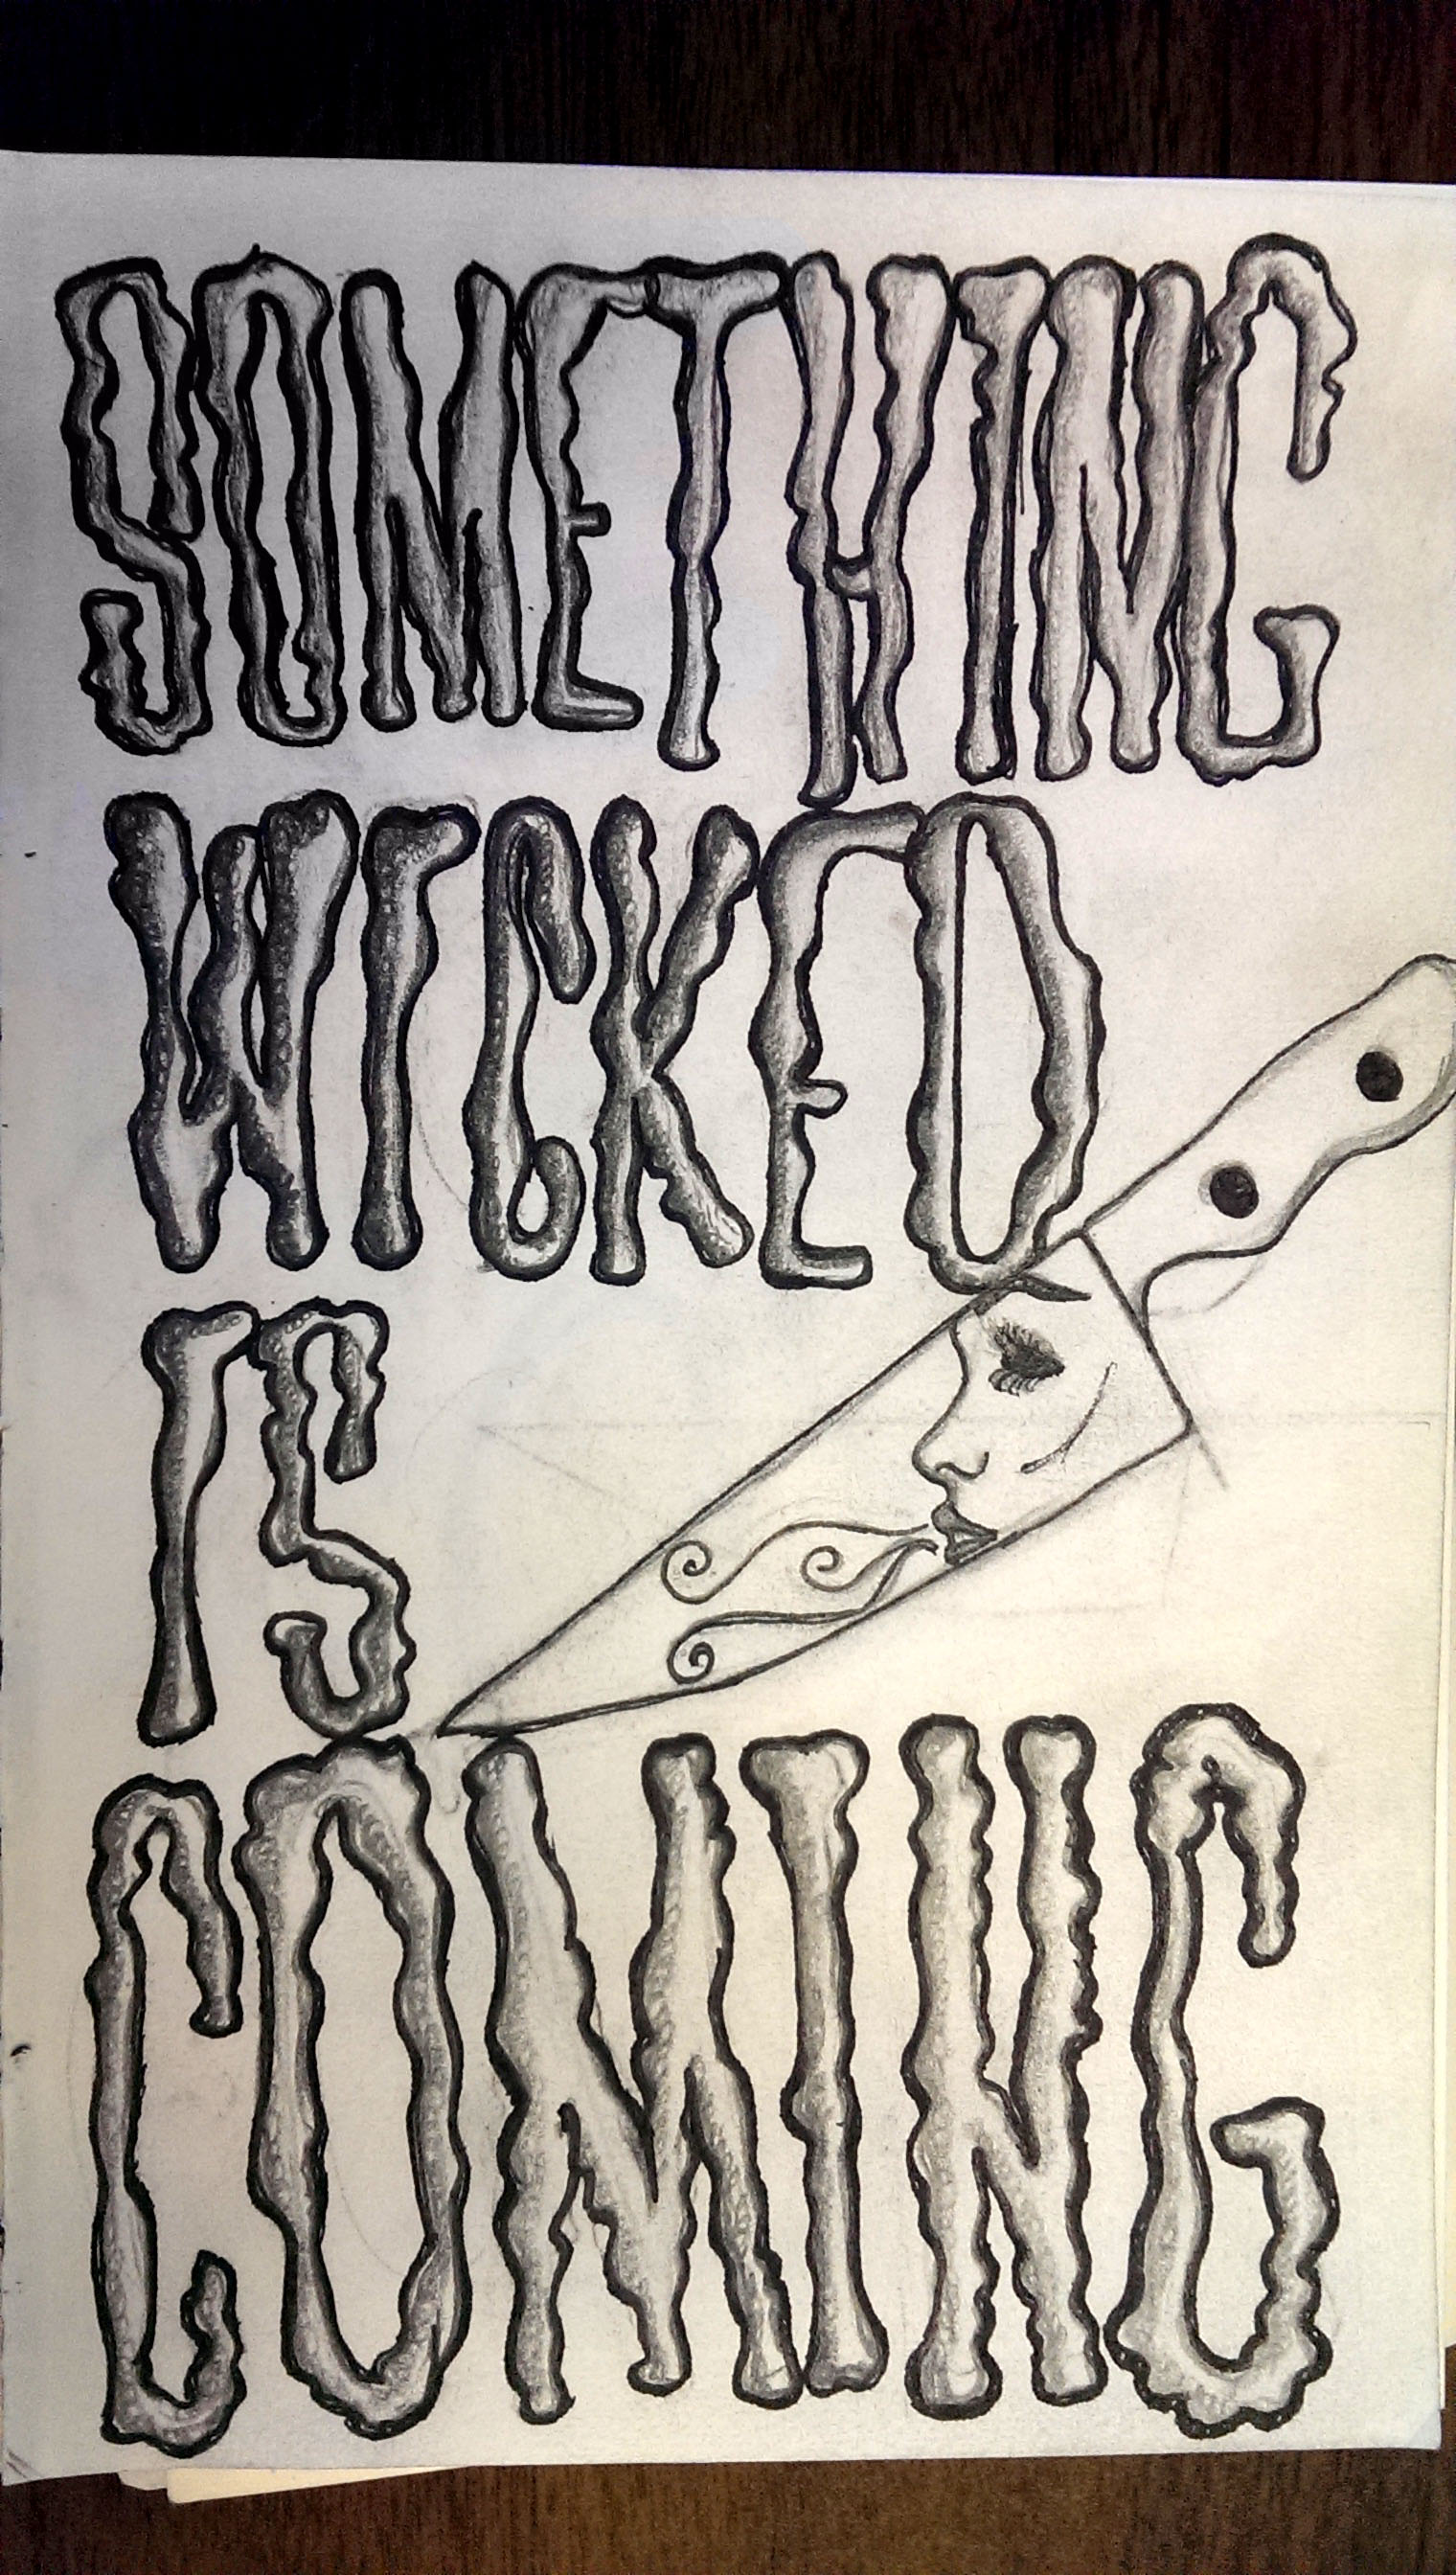 SOMETHING
WICKED
IS
COMING